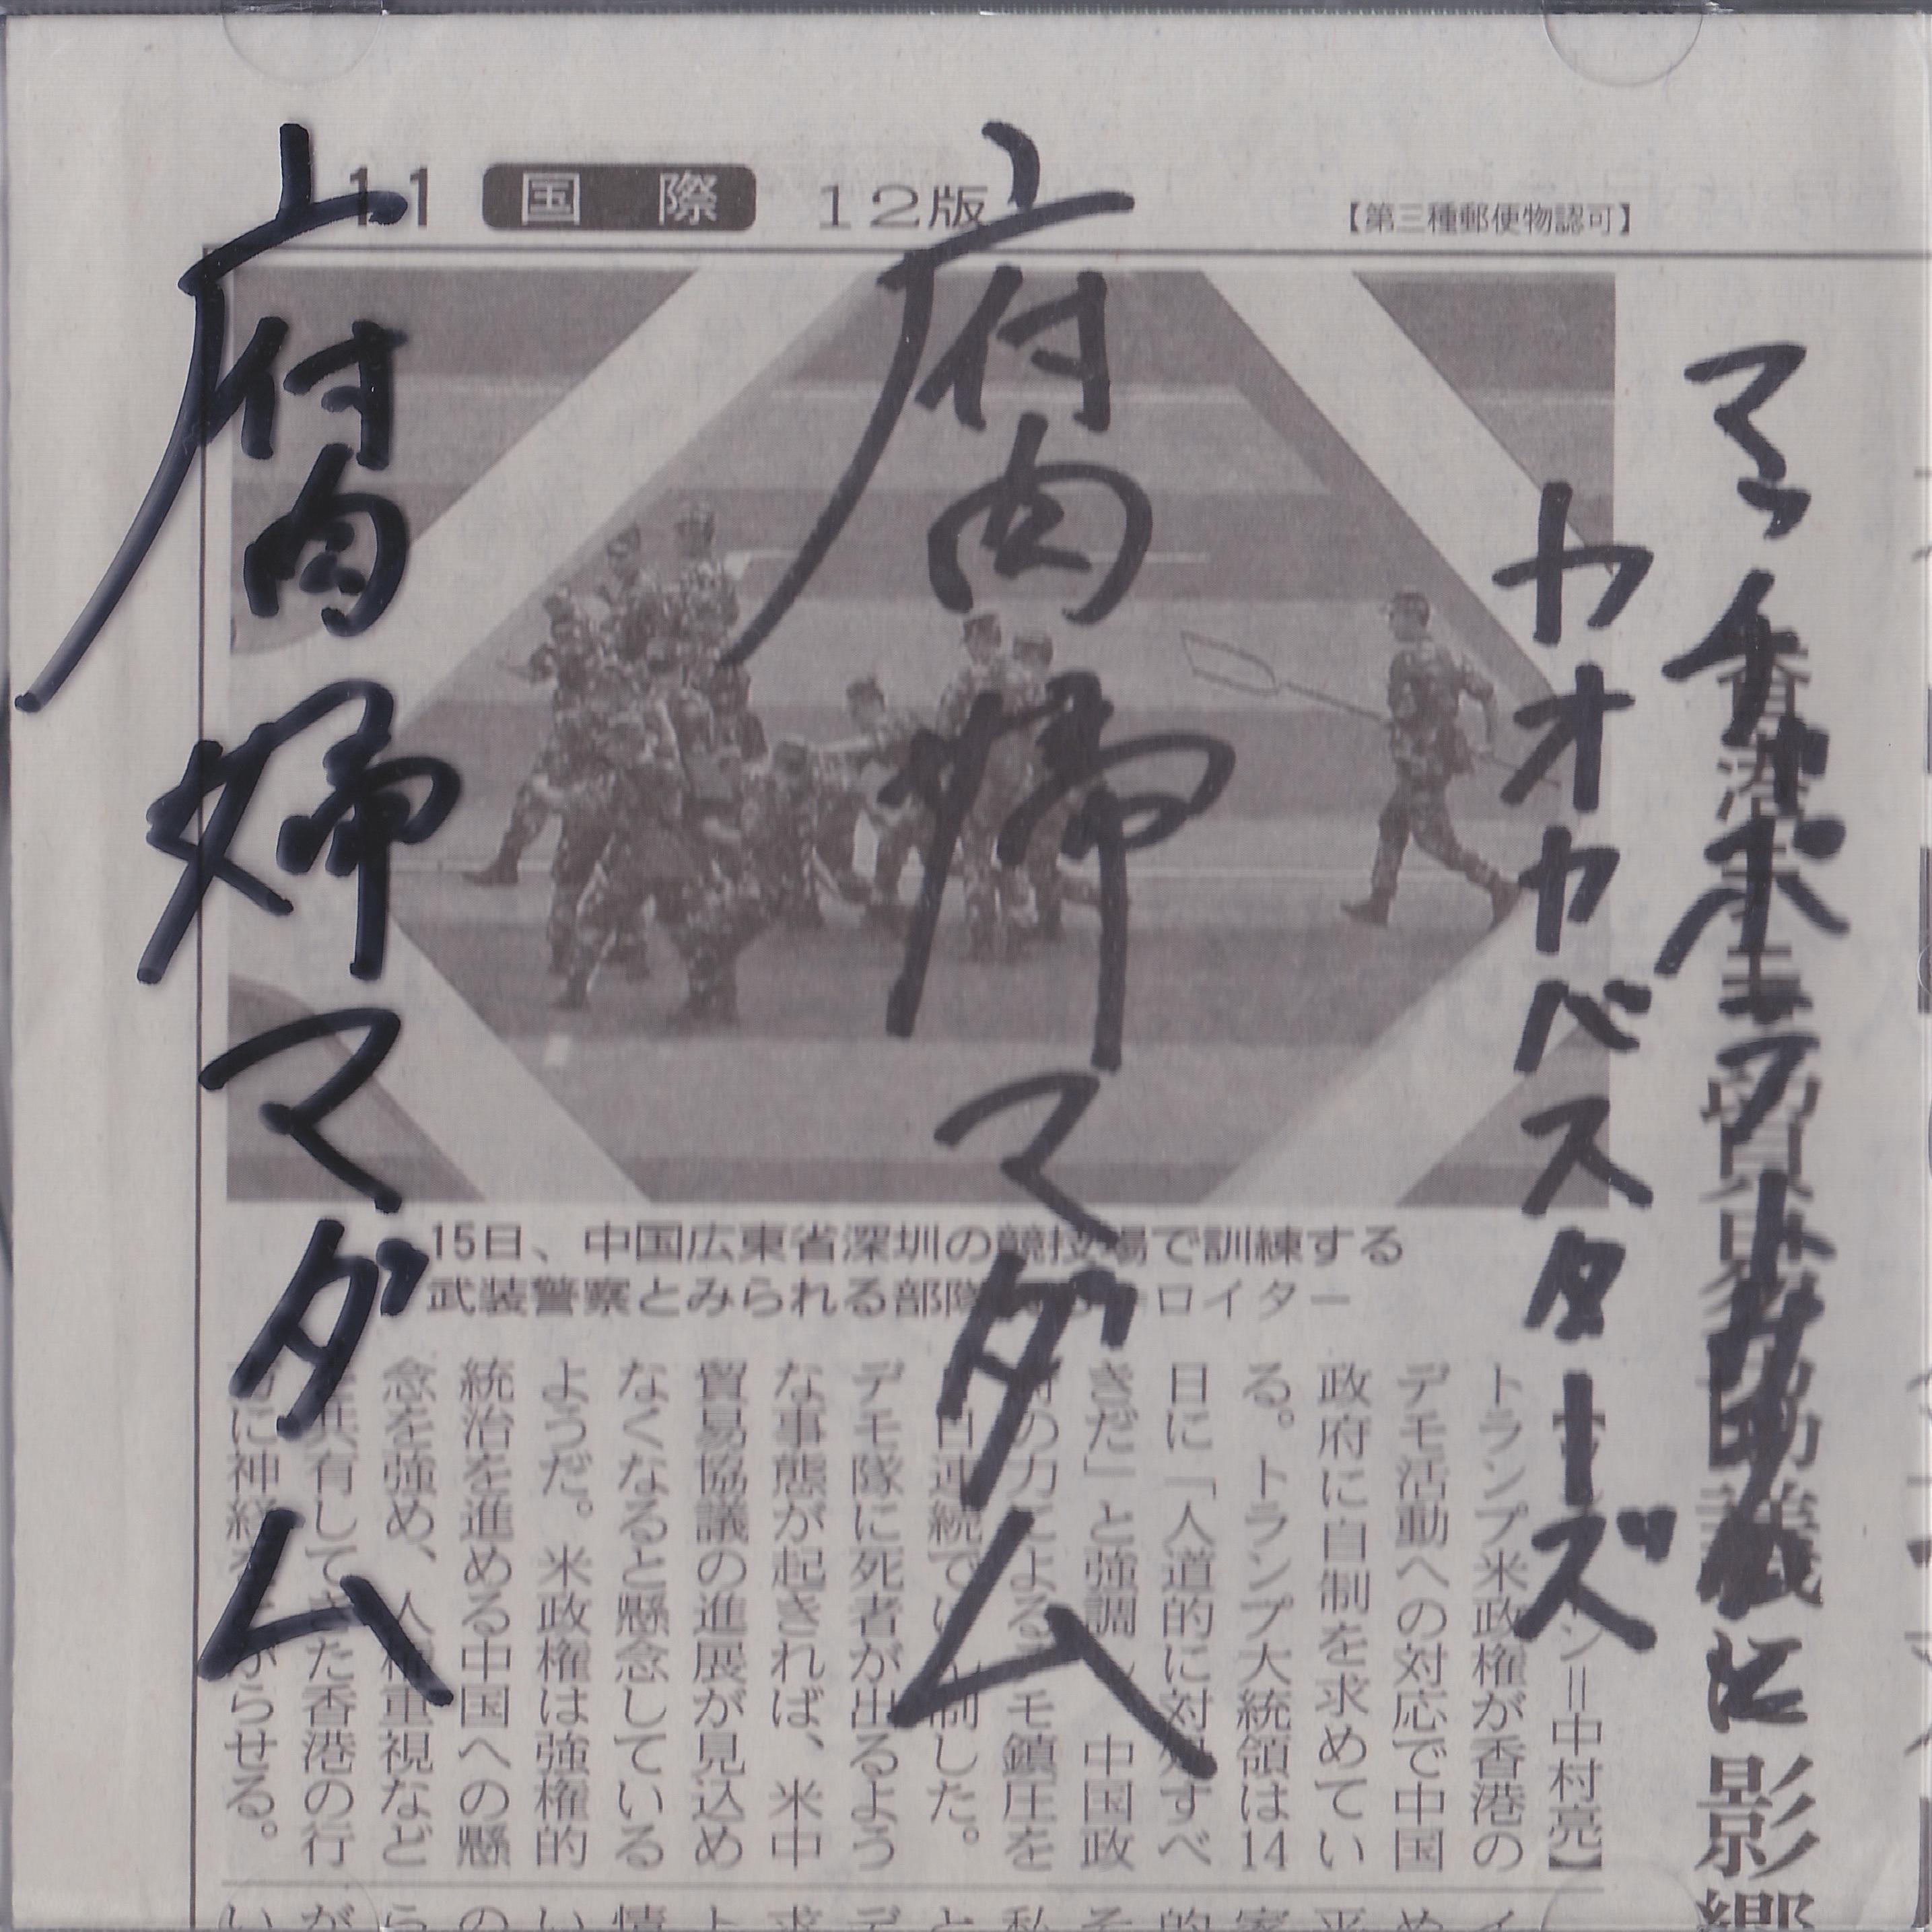 11 国際 12版
【第三種郵便物認可】
カオカベスターズ
腐肉婦マダム
腐肉婦マダム
影響
15日、中国広東省深圳の競技場で訓練する
武装警察とみられる部隊 ロイター
ン＝中村亮】
トランプ米政権が香港の
デモ活動への対応で中国
政府に自制を求めてい
る。トランプ大統領は14
日に「人道的に対処すべ
きだ」と強調し、中国政
の力によるデモ鎮圧を
日連続で 制した。
デモ隊に死者が出るよう
な事態が起きれば、米中
貿易協議の進展が見込め
なくなると懸念している
ようだ。米政権は強権的
統治を進める中国への懸
念を強め、人権重視など
有して た香港の行
に神経 がらせる。